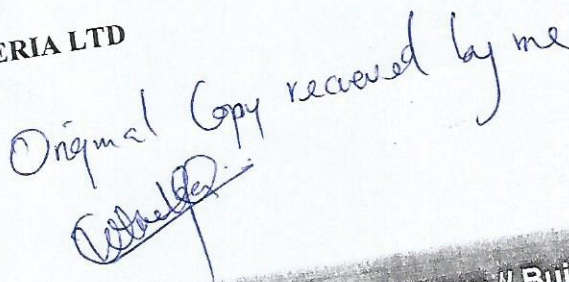 ERIA LTD
Original Copy recieved by me
Bui